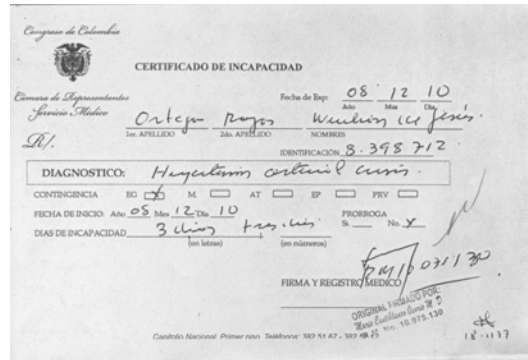 Congreso de Colombia
CERTIFICADO DE INCAPACIDAD
Cámara de Representantes
Servicio Médico
Fecha de Exp: 08 12 10
Año Mes Día
Ortega Rojas Jesús.
1er. APELLIDO 2do. APELLIDO NOMBRES
R/.
IDENTIFICACIÓN 8.398 712
DIAGNOSTICO: arterial crisis.
CONTINGENCIA EG X M. AT EP PRV
FECHA DE INICIO: Año 08 Mes 12 Día 10 PRORROGA
Si. No. X
DIAS DE INCAPACIDAD 3 dias tres dias
(en letras) (en números)
FIRMA Y REGISTRO MEDICO
ORIGINAL FIRMADO POR:
No. 10.975.130
Capitolio Nacional Primer piso Teléfonos: 382 51 67 - 382
18-1137